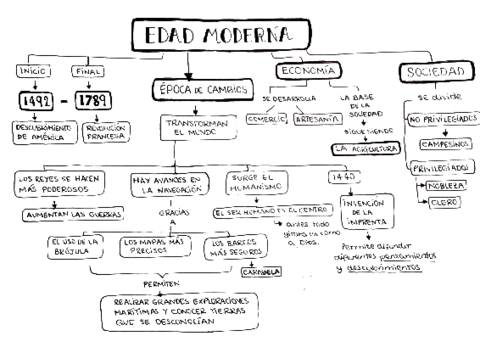 EDAD MODERNA
INICIO
FINAL
1492 - 1789
DESCUBRIMIENTO
DE AMÉRICA
REVOLUCIÓN
FRANCESA
ÉPOCA DE CAMBIOS
TRANSFORMAN
EL MUNDO
ECONOMÍA
SE DESARROLLA
COMERCIO
ARTESANÍA
LA BASE
DE LA
SOCIEDAD
SIGUE SIENDO
LA AGRICULTURA
SOCIEDAD
se divide
NO PRIVILEGIADOS
CAMPESINOS
PRIVILEGIADOS
NOBLEZA
CLERO
LOS REYES SE HACEN
MÁS PODEROSOS
AUMENTAN LAS GUERRAS
HAY AVANCES EN
LA NAVEGACIÓN
GRACIAS
A
EL USO DE LA
BRÚJULA
LOS MAPAS MÁS
PRECISOS
LOS BARCOS
MÁS SEGUROS
CARABELA
PERMITEN
REALIZAR GRANDES EXPLORACIONES
MARÍTIMAS Y CONOCER TIERRAS
QUE SE DESCONOCÍAN
SURGE EL
HUMANISMO
EL SER HUMANO ES EL CENTRO
antes todo
giraba en torno
a Dios.
1440
INVENCIÓN
DE LA
IMPRENTA
Permite difundir
diferentes pensamientos
y descubrimientos